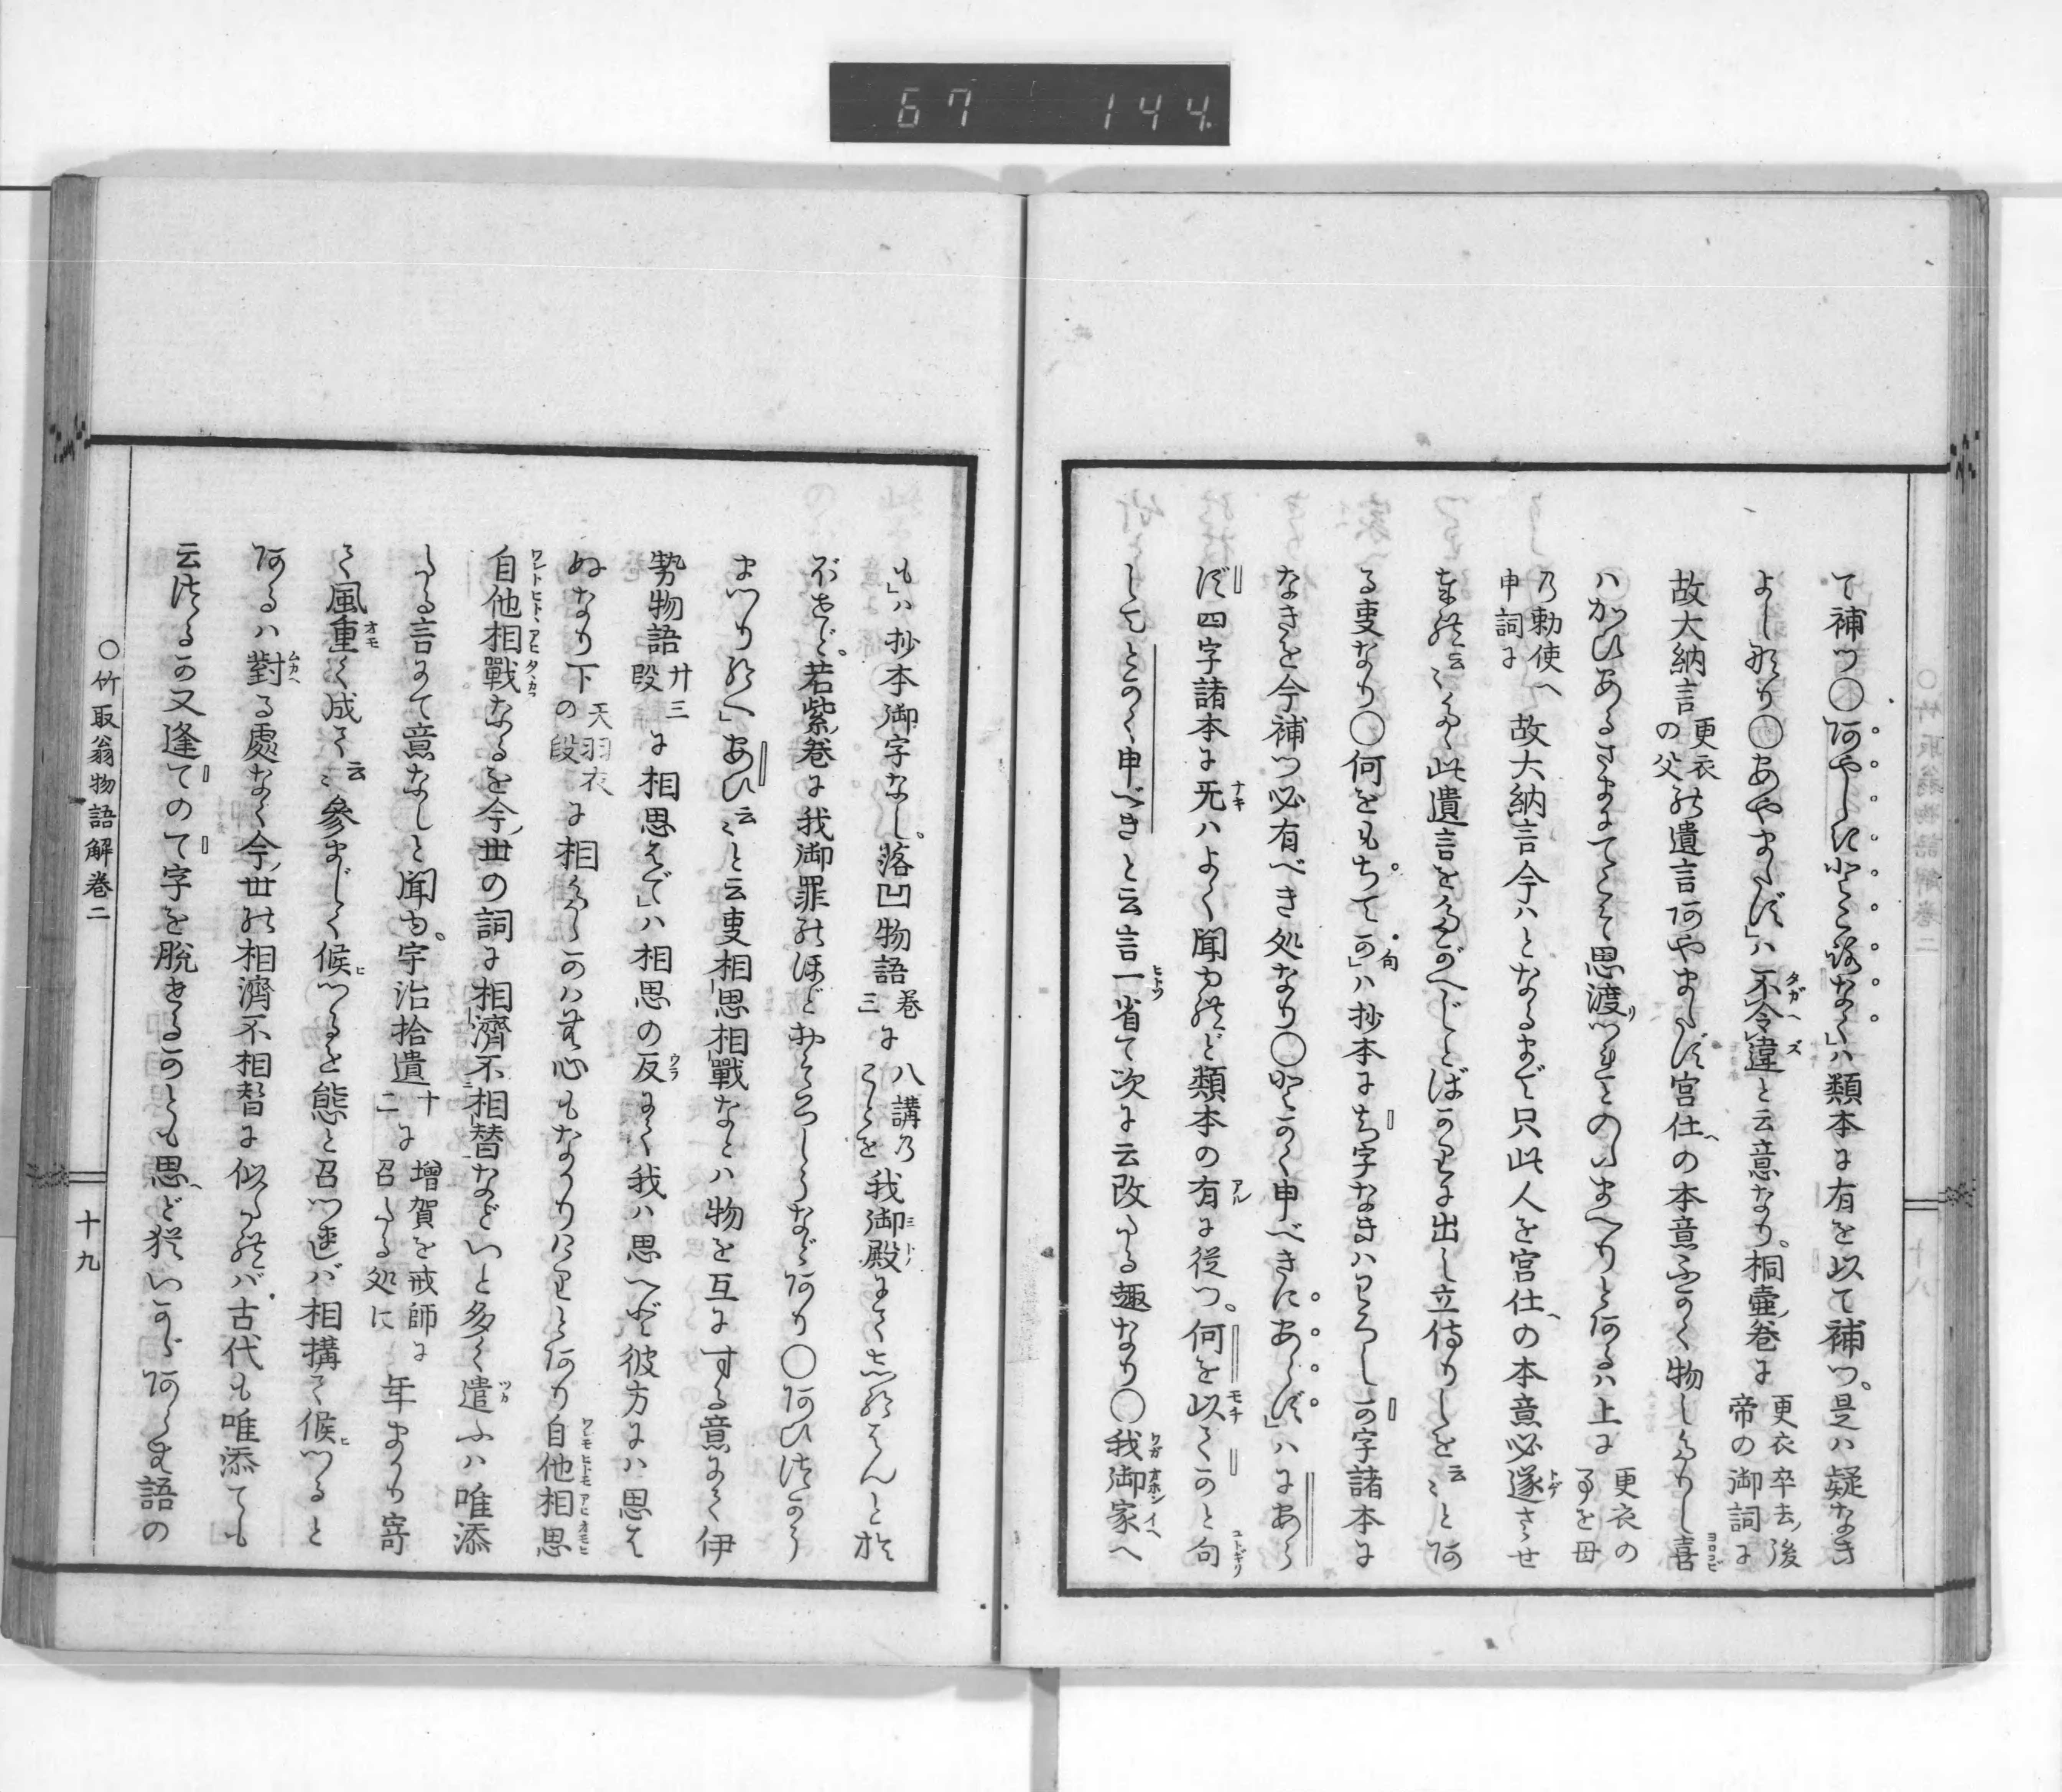 67 144
て補つ○阿やしきところなく」ハ類本に有を以て補つ。是ハ疑なき
よし也○あやまたず」ハ不令違と云意なり。桐壷ノ巻に更衣卒去ノ後帝の御詞に
故大納言更衣の父の遺言阿やまたず宮仕への本意ふかく物したりし喜
ハかひあるさまにてこそ思渡りつれとのたまへりと阿るハ上に更衣の事を母
乃勅使へ申詞に故大納言今ハとなるまで只此人を宮仕への本意必遂させ
奉れ云々たゞ此遺言をたがへじとばかりに出し立侍りしを云々と阿
る事なり○何をもちてか」ハ抄本にち字なきハわろしか字諸本に
なきを今補つ必有べき処なり○とかく申べきにあらず」ハにあら
ず四字諸本に旡ハよく聞ゆれど類本の有に従つ。何を以てかと句
してとかく申べきと云言一省て次に云改たる趣なり○我御家へ
も」ハ抄本御字なし。落凹物語巻三に八講乃ことを我御殿にてし給はんとお
ぼせど。若紫ノ巻に我御罪のほどおそろしうなど阿り○阿ひたゝかう
まつり給へ」あひ云々と云事相思相戰なとハ物を互にする意にて伊
勢物語廿三段に相思はで」ハ相思の反にて我ハ思へど彼方にハ思は
ぬなり下の天羽衣の段に相たゝかはむ心もなかりけりと阿り自他相思
自他相戰なるを今ノ世の詞に相濟不相替などいと多く遣ふハ唯添
たる言にて意なしと聞ゆ。宇治拾遺十二に増賀を戒師に召たる処に年まかり寄
て風重く成て云々參ましく候つるを態と召つれバ相搆て候つると
阿るハ對る處なく今ノ世の相濟不相替に似たれバ古代も唯添ても
云けるか又逢てのて字を脱せるかとも思へど猶いかゞ阿らむ語の
○竹取翁物語解巻二
十九